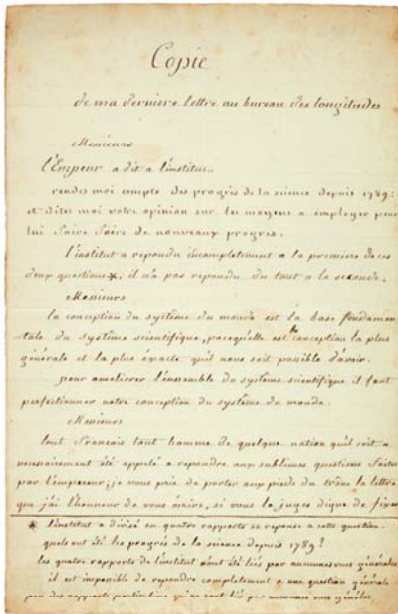 Copie
de ma dernière lettre au bureau des longitudes
Messieurs
l'Empereur a dit a l'institut.
rendez moi compte des progrès de la science depuis 1789:
et dites moi votre opinion sur les moyens a employer pour
lui faire faire de nouveaux progres.
l'institut a repondu incomplettement a la premiere de ces
deux questions*, il n'a pas repondu du tout a la seconde.
Messieurs
la conception du systême du monde est la base fondamen
tale du systême scientifique, parcequ'elle est la conception la plus
générale et la plus éxacte qu'il nous soit possible d'avoir.
pour ameliorer l'ensemble du systême scientifique il faut
perfectionner notre conception du systême du monde.
Messieurs
tout français tout homme de quelque nation qu'il soit a
necessairement été appelé a repondre aux sublimes questions faites
par l'empereur; je vous prie de porter aux pieds du trône la lettre
que j'ai l'honneur de vous écrire, si vous la jugez digne de fixer
* l'institut a divisé en quatre rapports sa reponse a cette question.
quels ont été les progrès de la science depuis 1789?
les quatre rapports de l'institut n'ont été liés par aucunes vues générales
il est impossible de repondre completement a une question générale
par des rapports particuliers qui ne sont liés par aucunes vues générales